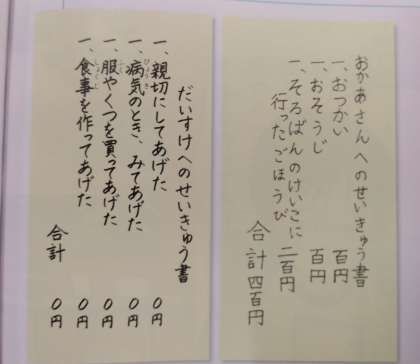 おかあさんへのせいきゅう書
一、おつかい 百円
一、おそうじ 百円
一、そろばんのけいこに
行ったごほうび 二百円
合計四百円
だいすけへのせいきゅう書
一、親切にしてあげた 0円
一、病気のとき、みてあげた 0円
一、服やくつを買ってあげた 0円
一、食事を作ってあげた 0円
合計 0円